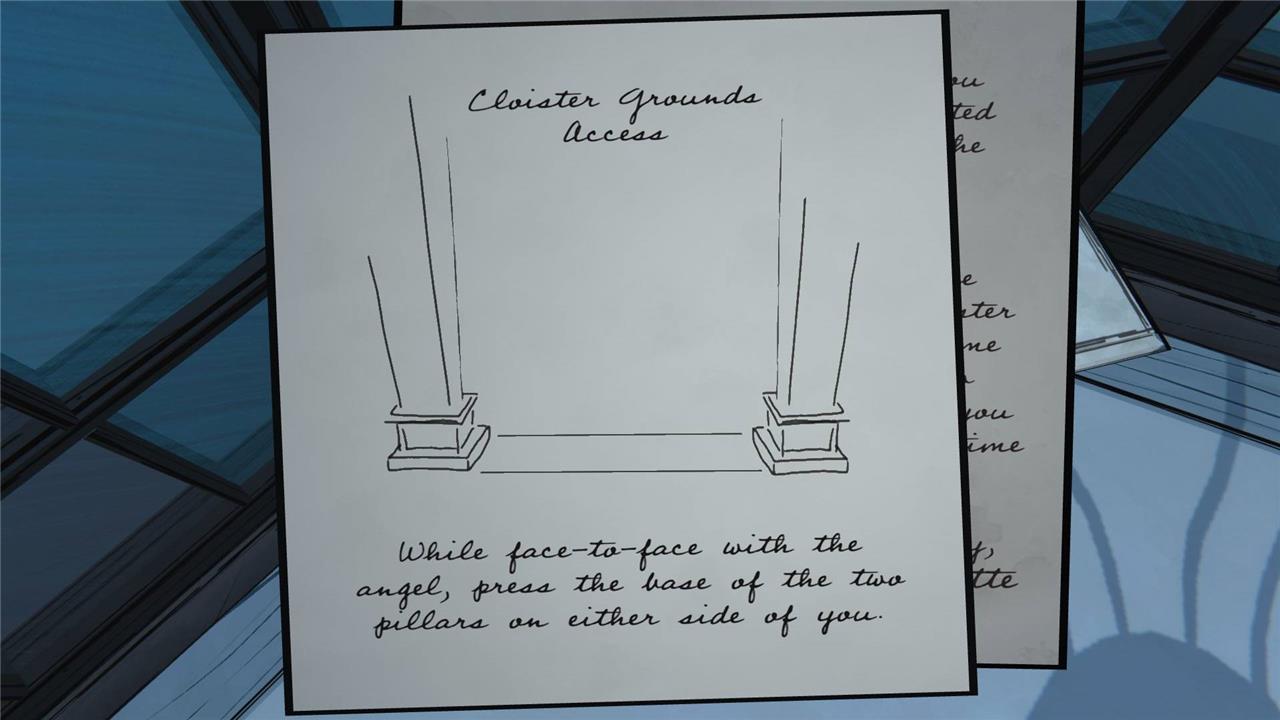 Cloister Grounds
Access
While face-to-face with the
angel, press the base of the two
pillars on either side of you.
you
time